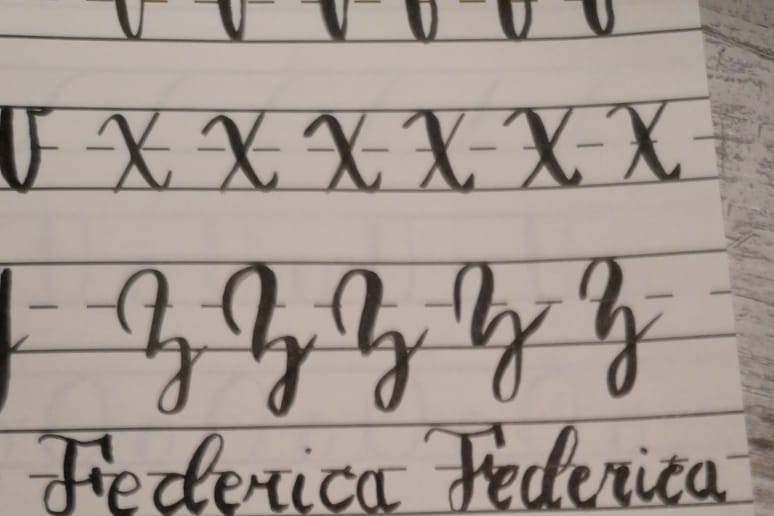 v x x x x x x
z z z z z
Federica Federica